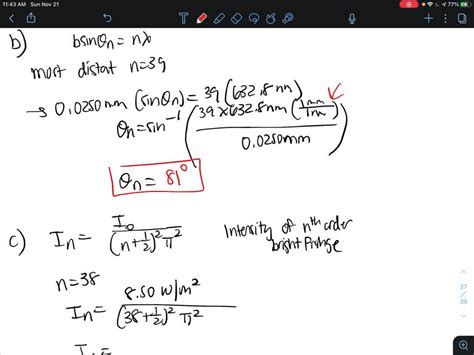 11:43 AM Sun Nov 21
77%
b) bsinθn = nλ
most distat n=39
→ 0.0250mm (sinθn) = 39 (632.8 nm)
θn = sin⁻¹ (39 x 632.8nm (1mm/1nm) / 0.0250mm)
θn = 81°
c) In = I₀ / (n+½)² π²
Intensity of nth order
bright fringe
n=38
In = 8.50 W/m² / (38+½)² π²
37
/
39